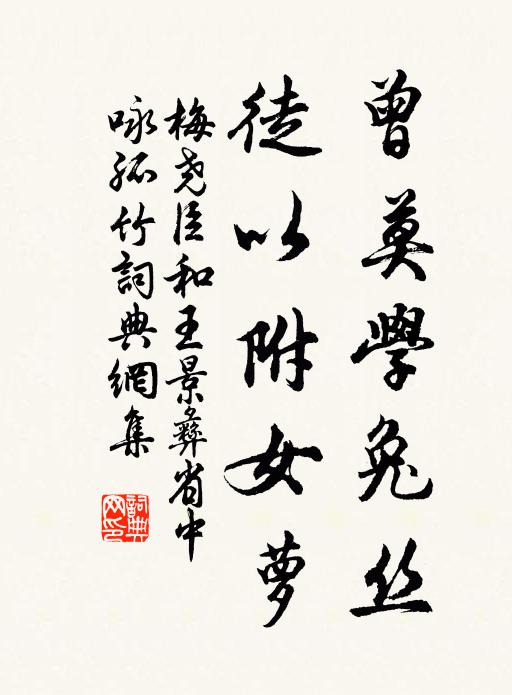 曾莫學兔丝
徒以附女萝
梅尧臣和王景彝省中
咏孤竹詞典網集
詞典网印